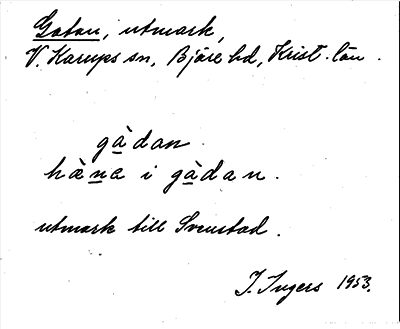 Gatan, utmark,
V. Karups sn, Bjäre hd, Krist. län.
gàdan
hàna i gàdan.
utmark till Svenstad.
I. Ingers 1953.